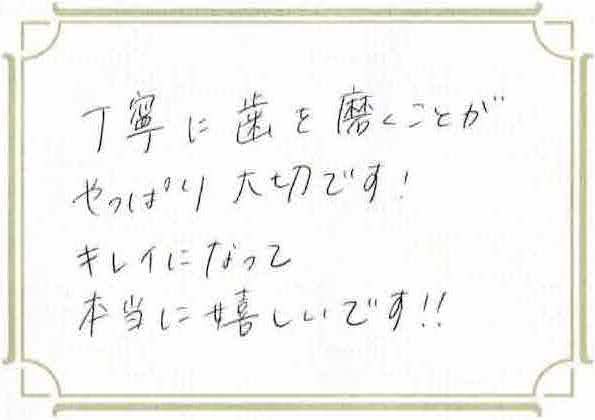 丁寧に歯を磨くことが
やっぱり大切です!
キレイになって
本当に嬉しいです!!